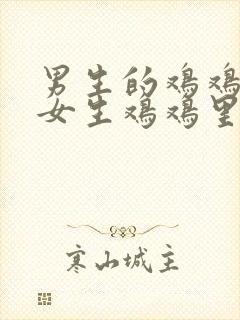 男生的鸡鸡
女生鸡鸡里
寒山城主